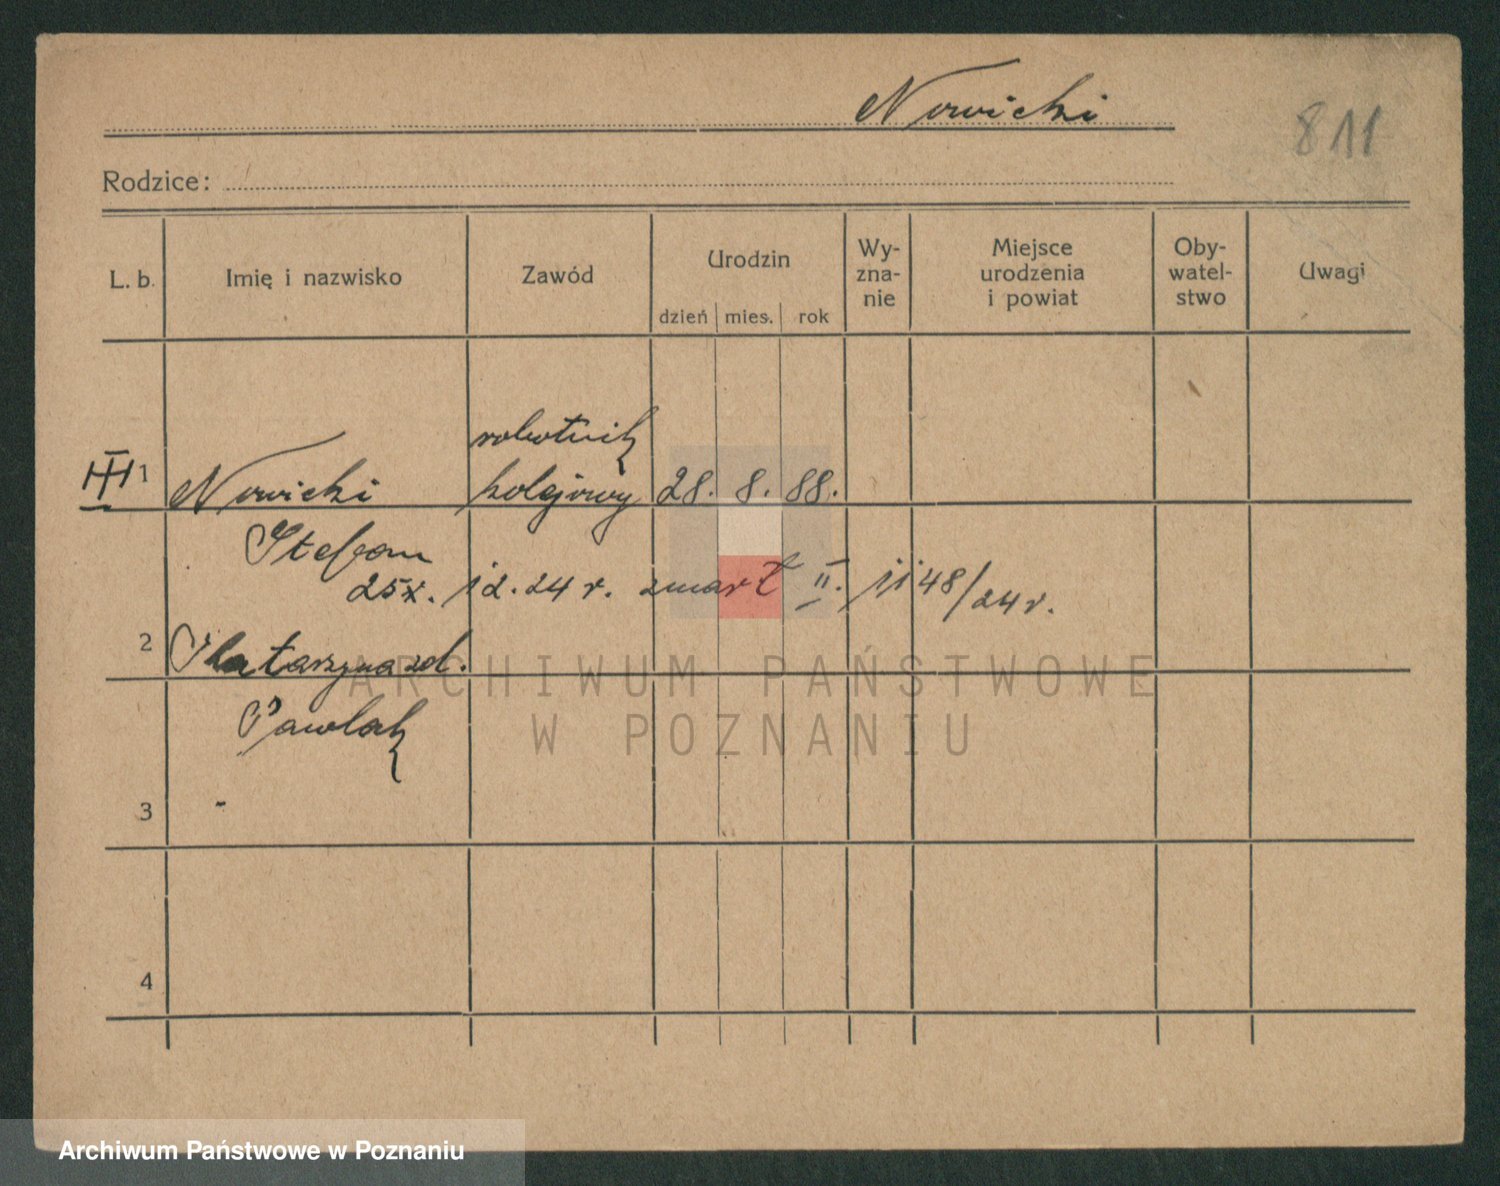 Nowicki
811
Rodzice:
L. b. Imię i nazwisko Zawód Urodzin Wy-zna-nie Miejsce urodzenia i powiat Oby-watel-stwo Uwagi
dzień mies. rok
robotnik
1 Nowicki kolejowy 28. 8. 88.
Stefan
25 . 12. 24 r. zmarł II. 1148/24 r.
2 Katarzyna zd.
Pawlak
3
4
ARCHIWUM PAŃSTWOWE
W POZNANIU
Archiwum Państwowe w Poznaniu